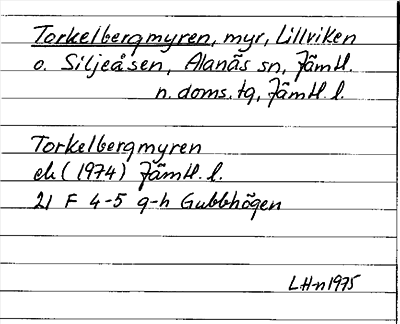 Torkelbergmyren, myr, Lillviken
o. Siljeåsen, Alanäs sn, Jämtl.
n. doms. tg, Jämtl. l.
Torkelbergmyren
ek (1974) Jämtl. l.
21 F 4-5 g-h Gubbhögen
LHn 1975